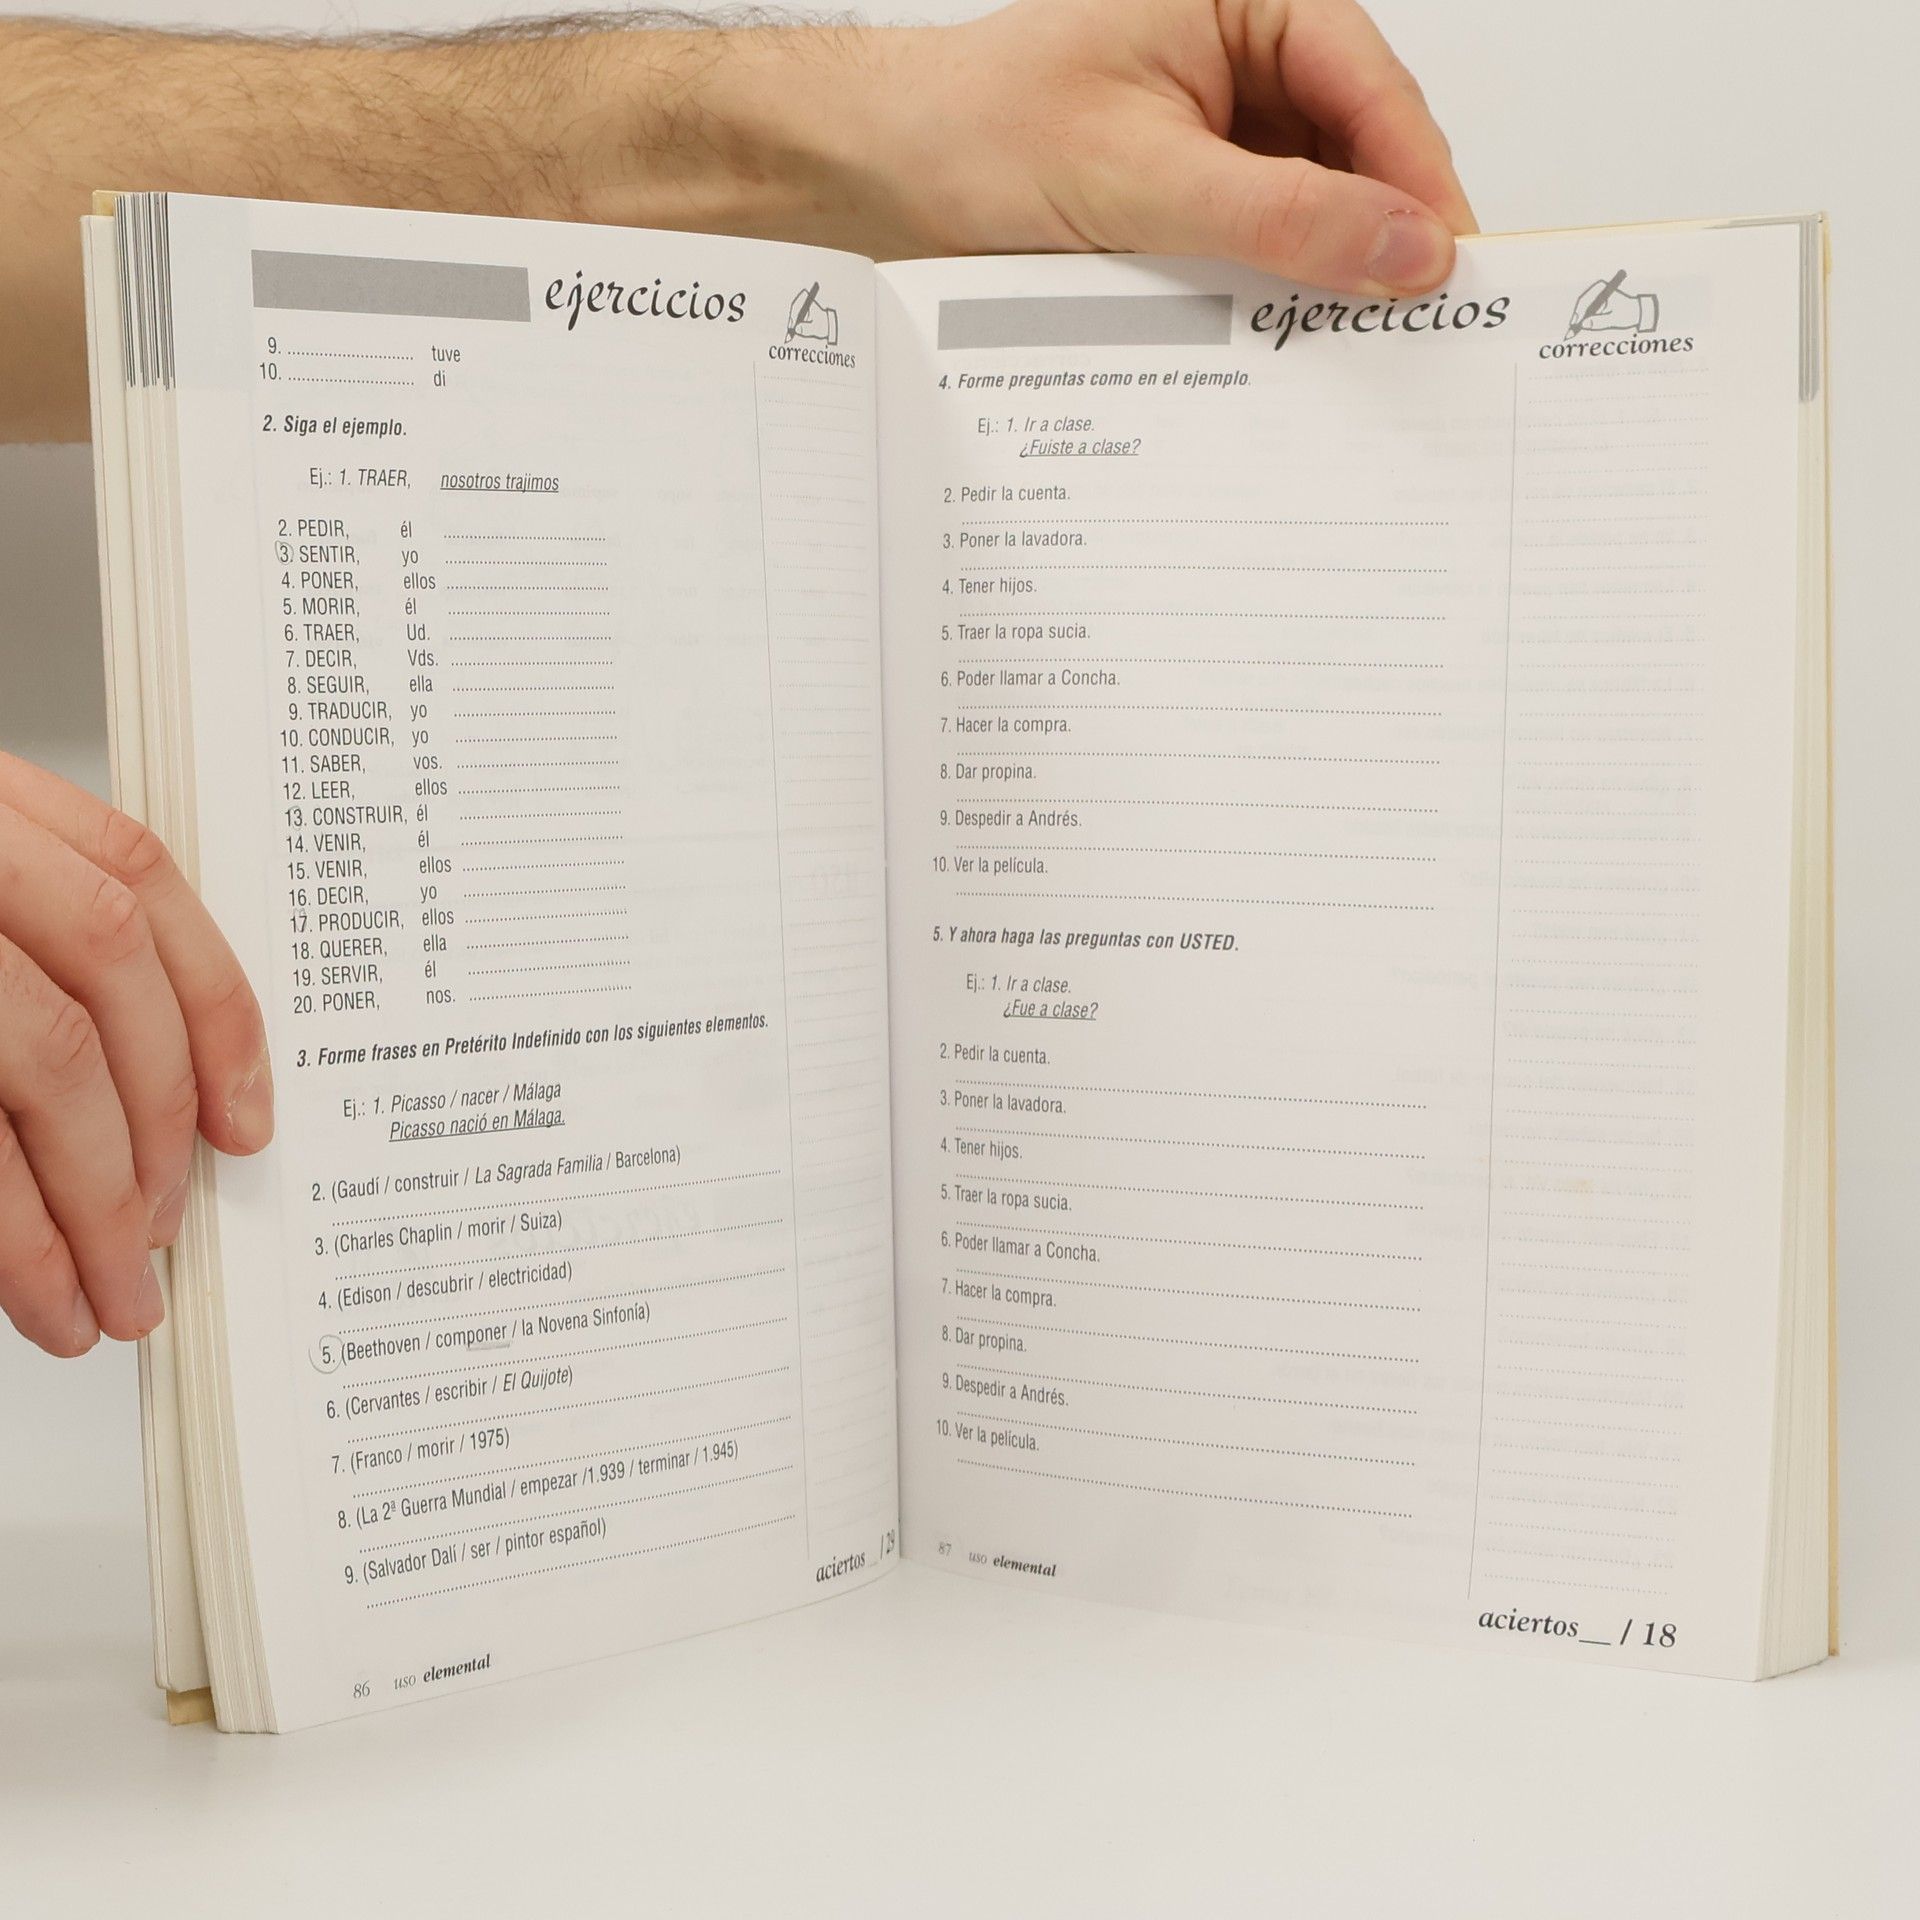 ejercicios
correcciones
9. .......................... tuve
10. .......................... di
2. Siga el ejemplo.
Ej.: 1. TRAER, nosotros trajimos
2. PEDIR, él ..................................
3. SENTIR, yo ..................................
4. PONER, ellos ..................................
5. MORIR, él ..................................
6. TRAER, Ud. ..................................
7. DECIR, Vds. ..................................
8. SEGUIR, ella ..................................
9. TRADUCIR, yo ..................................
10. CONDUCIR, yo ..................................
11. SABER, vos. ..................................
12. LEER, ellos ..................................
13. CONSTRUIR, él ..................................
14. VENIR, él ..................................
15. VENIR, ellos ..................................
16. DECIR, yo ..................................
17. PRODUCIR, ellos ..................................
18. QUERER, ella ..................................
19. SERVIR, él ..................................
20. PONER, nos. ..................................
3. Forme frases en Pretérito Indefinido con los siguientes elementos.
Ej.: 1. Picasso / nacer / Málaga
Picasso nació en Málaga.
2. (Gaudí / construir / La Sagrada Familia / Barcelona)
3. (Charles Chaplin / morir / Suiza)
4. (Edison / descubrir / electricidad)
5. (Beethoven / componer / la Novena Sinfonía)
6. (Cervantes / escribir / El Quijote)
7. (Franco / morir / 1975)
8. (La 2ª Guerra Mundial / empezar /1.939 / terminar / 1.945)
9. (Salvador Dalí / ser / pintor español)
aciertos __ / 29
86 uso elemental
ejercicios
correcciones
4. Forme preguntas como en el ejemplo.
Ej.: 1. Ir a clase.
¿Fuiste a clase?
2. Pedir la cuenta.
3. Poner la lavadora.
4. Tener hijos.
5. Traer la ropa sucia.
6. Poder llamar a Concha.
7. Hacer la compra.
8. Dar propina.
9. Despedir a Andrés.
10. Ver la película.
5. Y ahora haga las preguntas con USTED.
Ej.: 1. Ir a clase.
¿Fue a clase?
2. Pedir la cuenta.
3. Poner la lavadora.
4. Tener hijos.
5. Traer la ropa sucia.
6. Poder llamar a Concha.
7. Hacer la compra.
8. Dar propina.
9. Despedir a Andrés.
10. Ver la película.
87 uso elemental
aciertos__ / 18